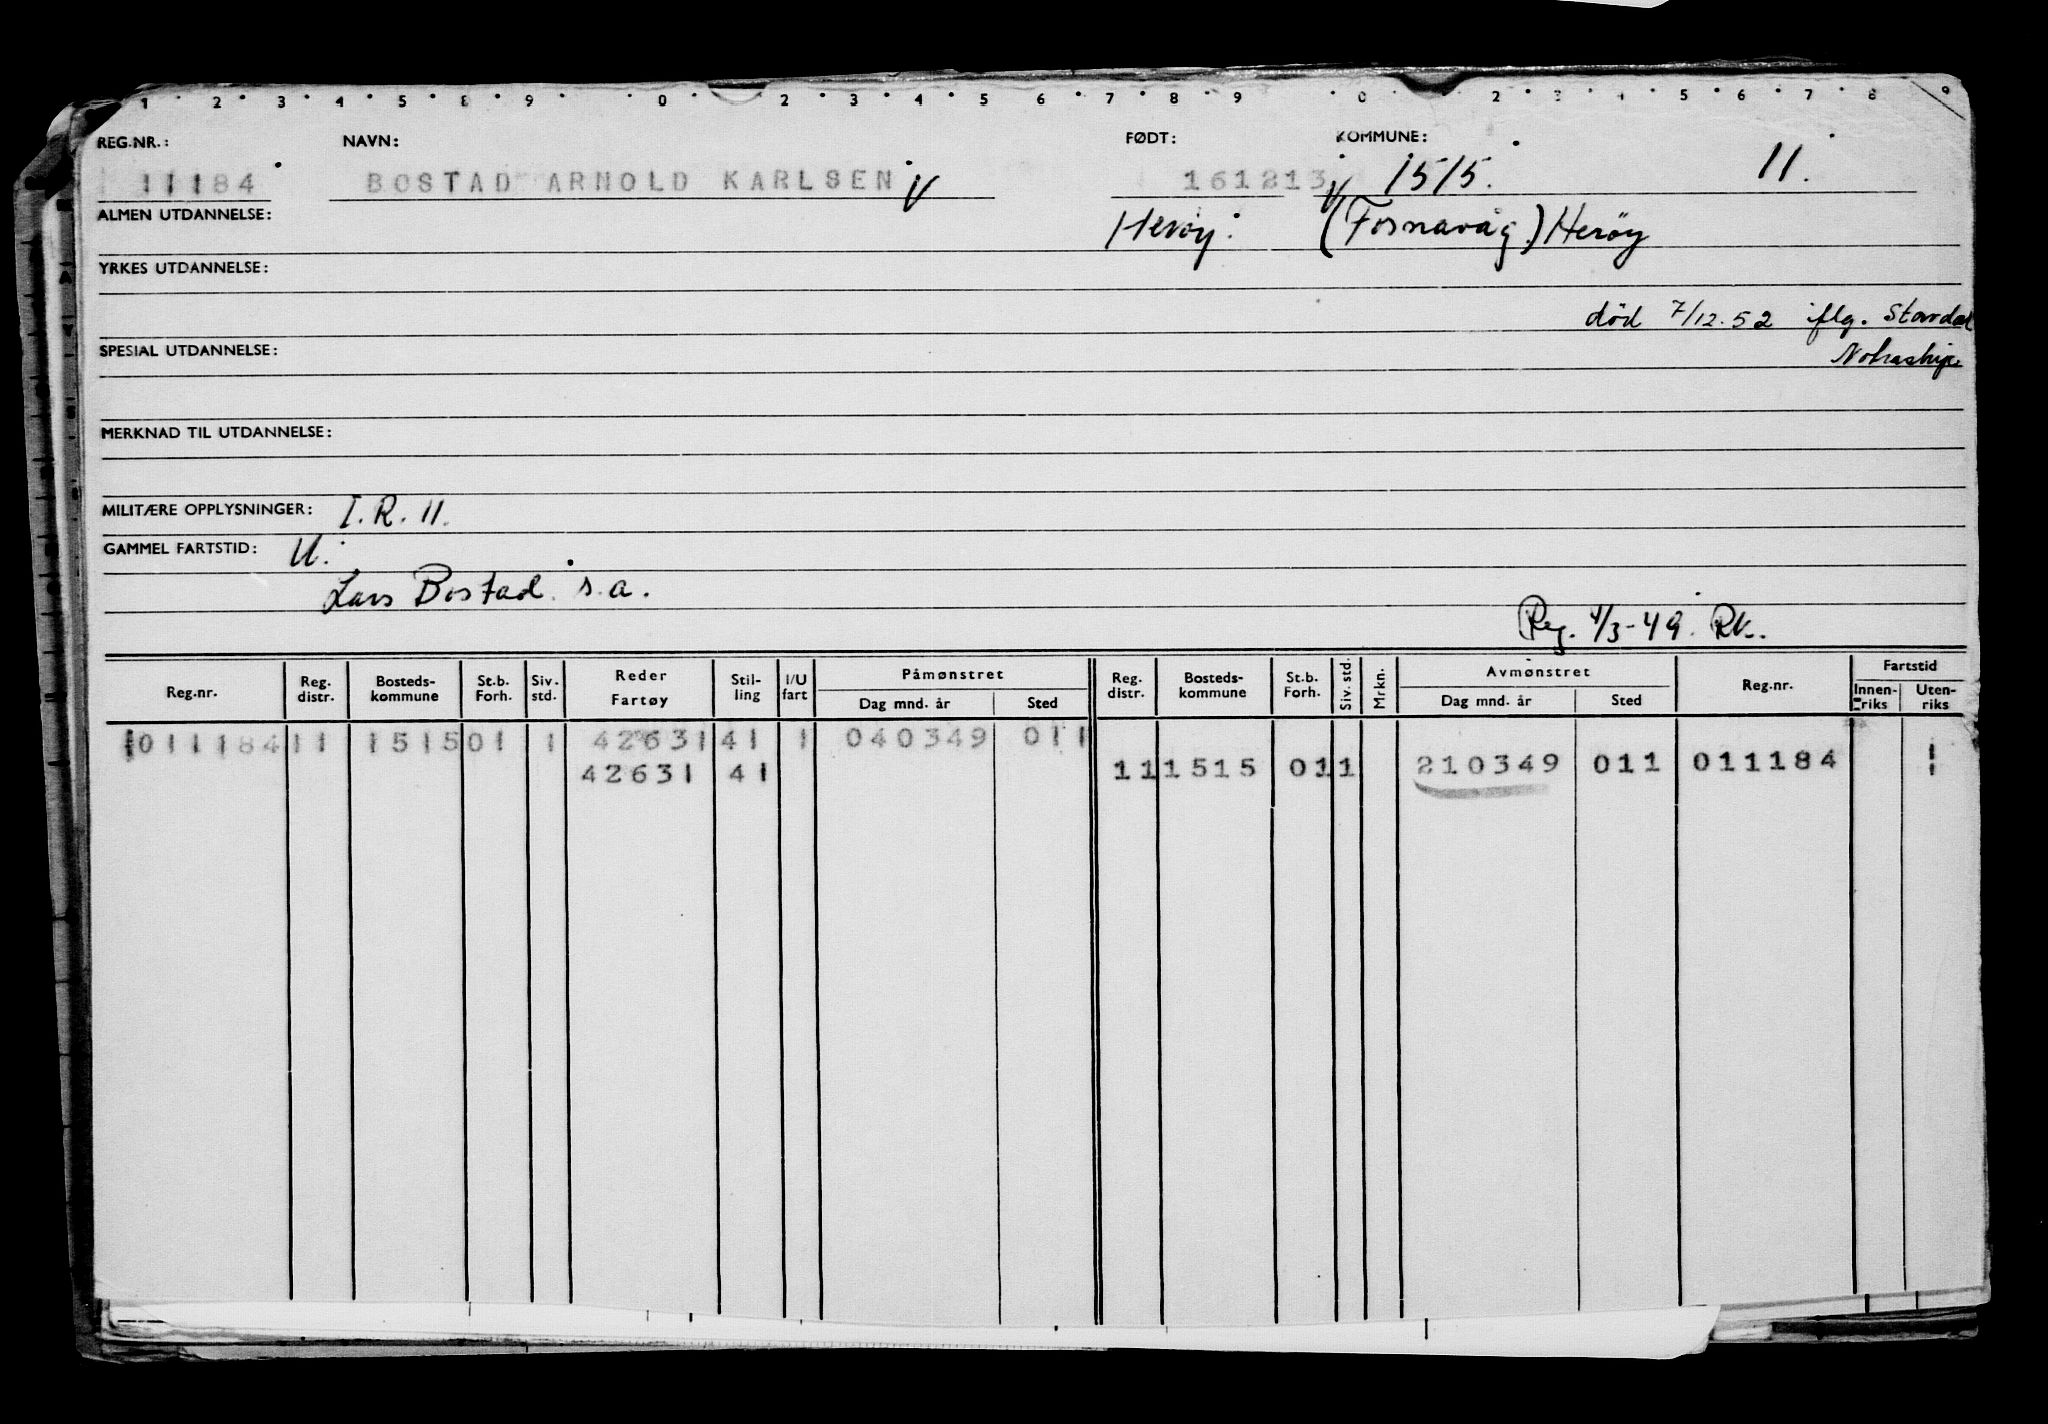 1 2 3 4 5 6 7 8 9 0 2 3 4 5 6 7 8 9 0 2 3 4 5 6 7 8 9
REG.NR.: NAVN: FØDT: KOMMUNE:
11184 BOSTAD ARNOLD KARLSEN 161213 1515. 11.
ALMEN UTDANNELSE: Herøy. (Fosnavåg.) Herøy
YRKES UTDANNELSE:
død 7/12.52 iflg.
SPESIAL UTDANNELSE: Notraship.
MERKNAD TIL UTDANNELSE:
MILITÆRE OPPLYSNINGER: I.R. 11.
GAMMEL FARTSTID: U.
Lars Bostad s.a.
Reg. 4/3-49. RK.
Reg.nr. Reg. distr. Bosteds-kommune St.b. Forh. Siv. std. Reder Fartøy Stil-ling I/U fart Påmønstret Dag mnd. år Sted Reg. distr. Bosteds-kommune St.b. Forh. Siv. std. Mrkn. Avmønstret Dag mnd. år Sted Reg.nr. Fartstid Innen-riks Uten-riks
1011184 11 1515 01 1 42631 41 1 040349 011
42631 41 11 1515 01 1 210349 011 011184 1